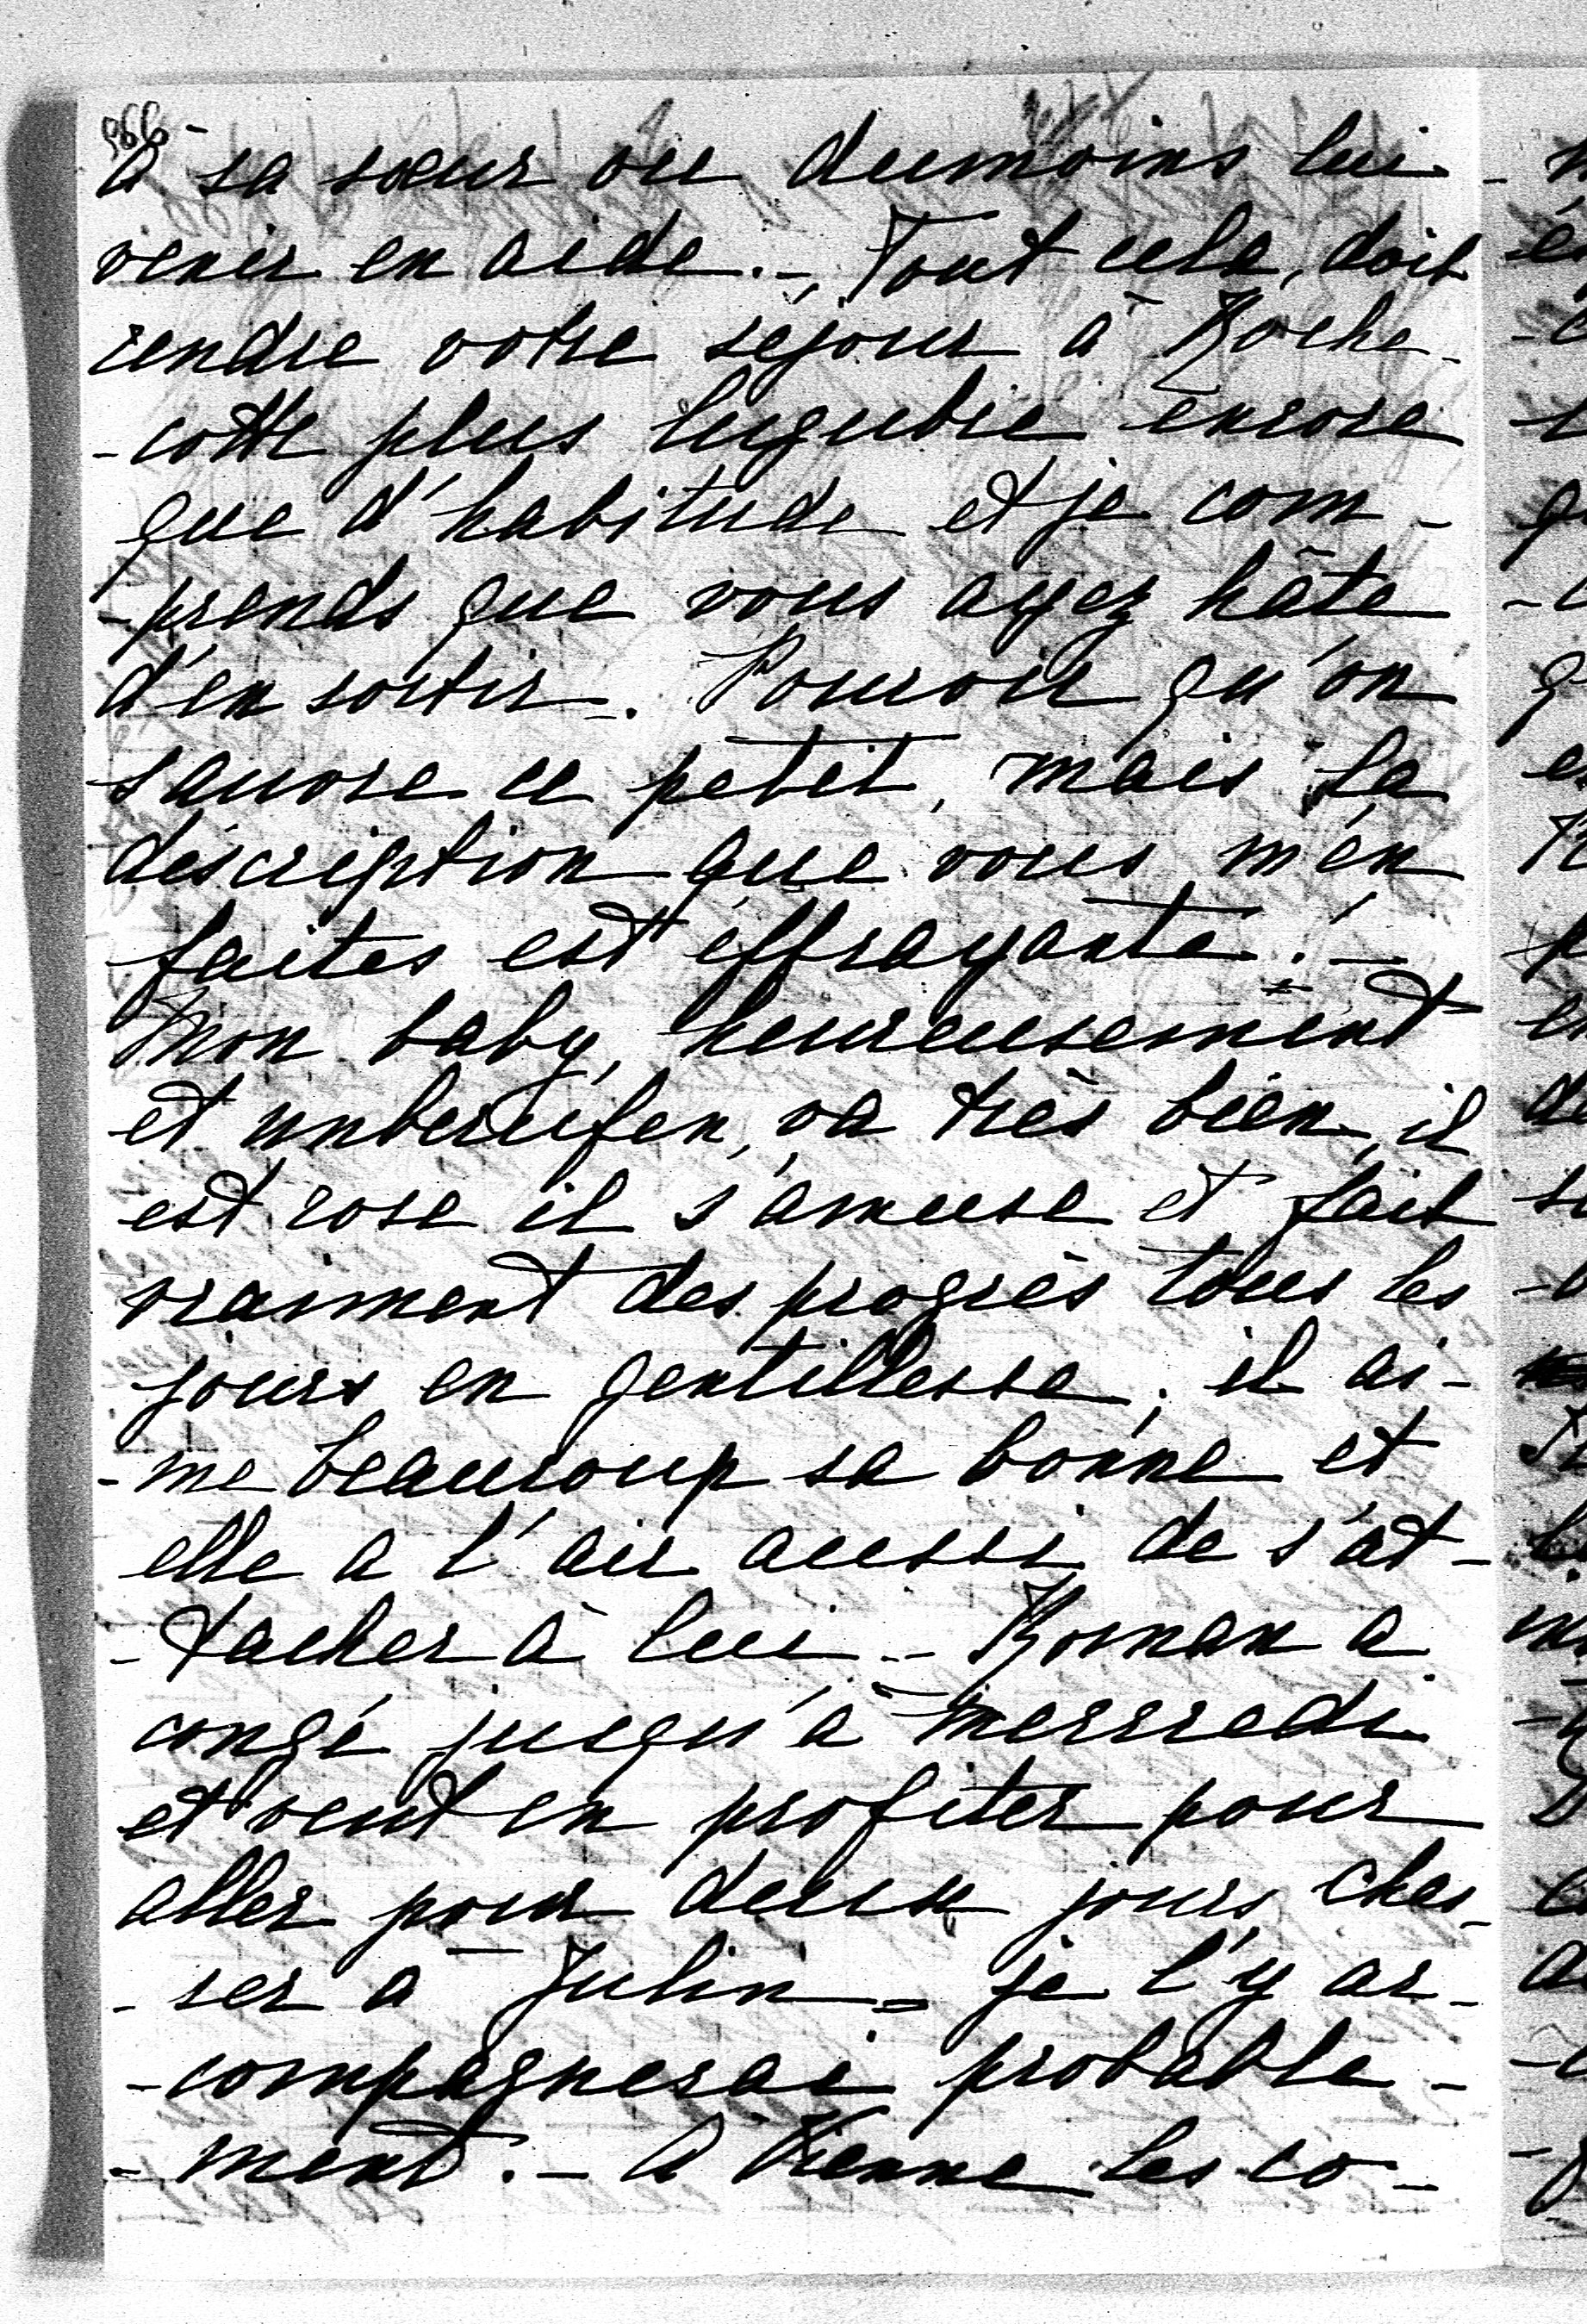 966-
à sa sœur ou dumoins lui
venir en aide. - Tout cela, doit
rendre votre séjour à Roche-
-cotte plus lugubre encore
que d'habitude et je com-
-prends que vous ayez hâte
d'en sortir -. Pourvu qu'on
sauve ce petit, mais la
description que vous m'en
faites est effrayante! -
Mon baby, heureusement
et unberufen, va très bien, il
est rose il s'amuse et fait
vraiment des progrès tous les
jours en gentillesse, il ai-
-me beaucoup sa bonne et
elle a l'air aussi de s'at-
-tacher à lui - Roman a
congé jusqu'à mercredi
et veut en profiter pour
aller pour deux jours chas-
-ser à Julin = je l'y ac-
-compagnerai probable-
-ment. - A Vienne les co-